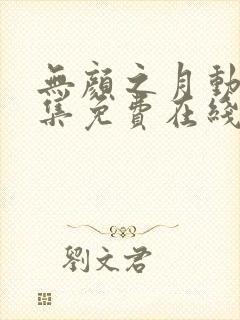 無顏之月動
集免費在綫
劉文君